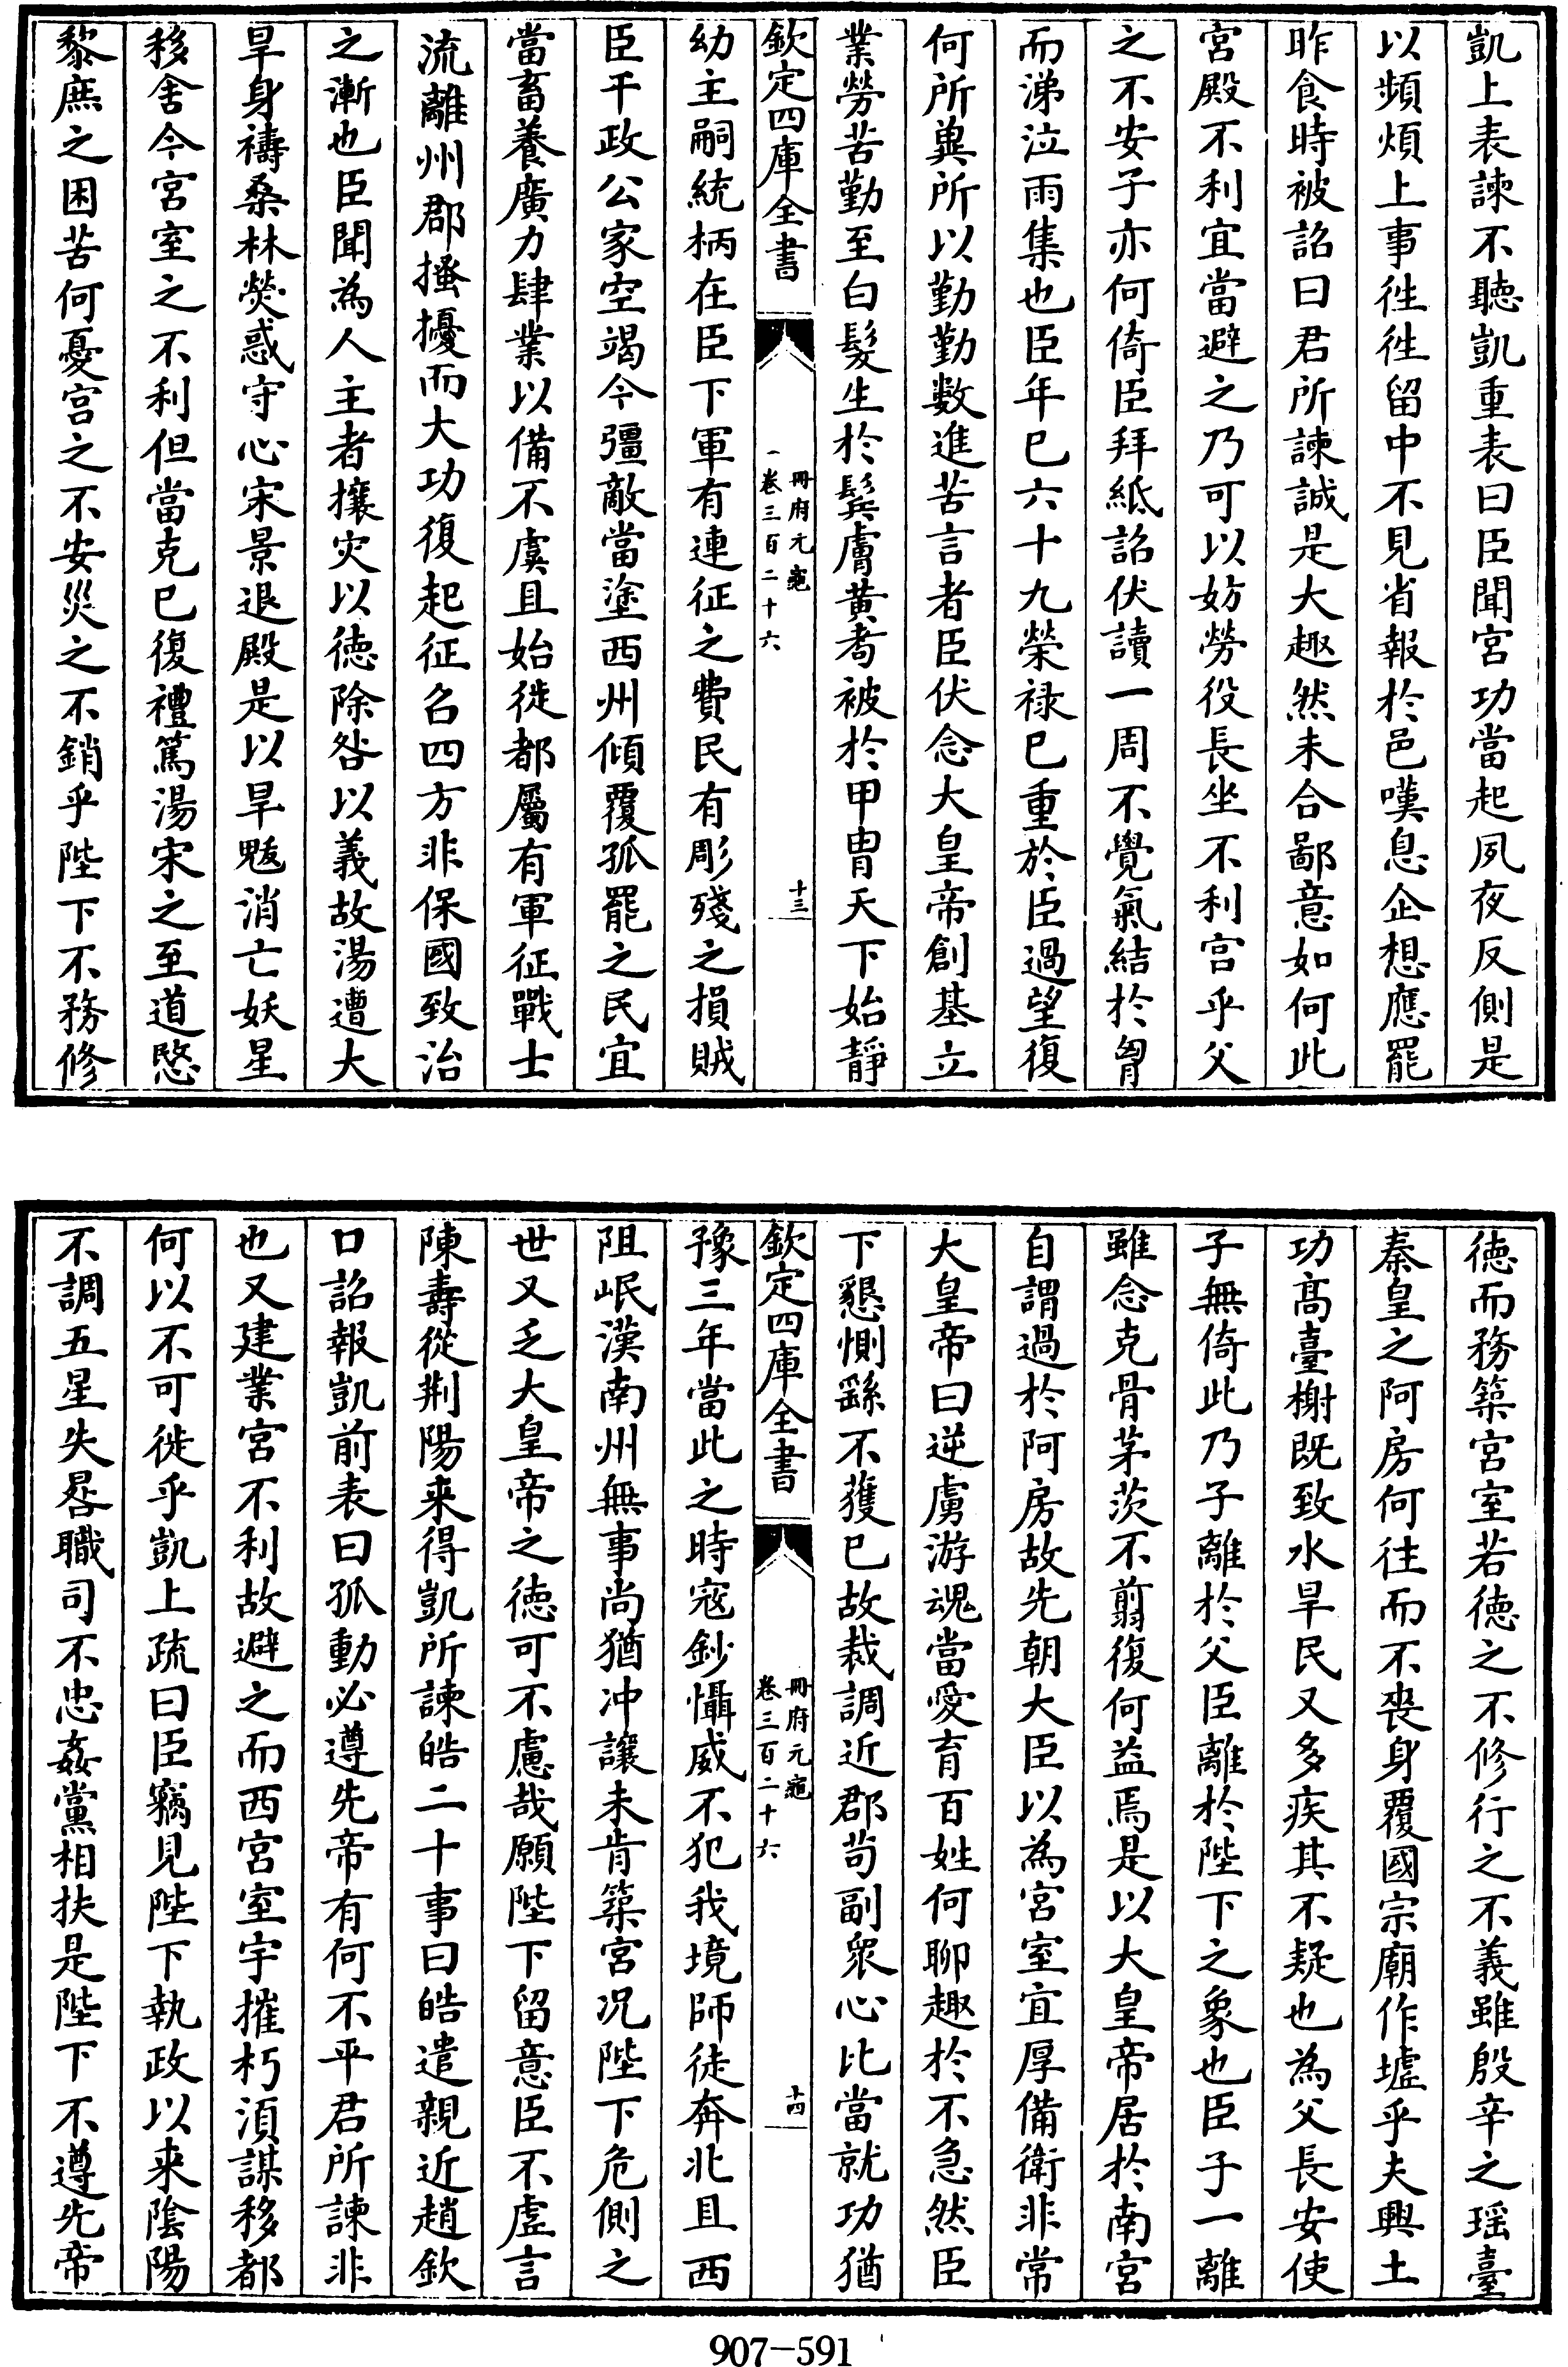 凱上表諫不聽凱重表曰臣聞宮功當起夙夜反側是
以頻煩上事徃徃留中不見省報於邑嘆息企想應罷
昨食時被詔曰君所諫誠是大趣然未合鄙意如何此
宮殿不利宜當避之乃可以妨勞役長坐不利宮乎父
之不安子亦何倚臣拜紙詔伏讀一周不覺氣結於胷
而涕泣雨集也臣年已六十九榮祿已重於臣過望復
何所兾所以勤勤數進苦言者臣伏念大皇帝創基立
業勞苦勤至白髮生於鬂膚黄耇被於甲胄天下始靜
欽定四庫全書
冊府元龜
卷三百二十六
十三
幼主嗣統柄在臣下軍有連征之費民有彫殘之損賊
臣干政公家空竭今彊敵當塗西州傾覆孤罷之民宜
當畜養廣力肆業以備不虞且始徙都屬有軍征戰士
流離州郡搔擾而大功復起征召四方非保國致治
之漸也臣聞為人主者攘灾以徳除咎以義故湯遭大
旱身禱桑林熒惑守心宋景退殿是以旱魃消亡妖星
移舍今宮室之不利但當克已復禮篤湯宋之至道愍
黎庶之困苦何憂宫之不安災之不銷乎陛下不務修
徳而務築宮室若徳之不修行之不義雖殷辛之瑶臺
秦皇之阿房何往而不喪身覆國宗廟作墟乎夫興土
功髙臺榭既致水旱民又多疾其不疑也為父長安使
子無倚此乃子離於父臣離於陛下之象也臣子一離
雖念克骨茅茨不翦復何益焉是以大皇帝居於南宮
自謂過於阿房故先朝大臣以為宮室宜厚備衛非常
大皇帝曰逆虜游魂當愛育百姓何聊趣於不急然臣
下懇惻繇不獲已故裁調近郡茍副衆心比當就功猶
欽定四庫全書
冊府元龜
卷三百二十六
十四
豫三年當此之時寇鈔懾威不犯我境師徒奔北且西
阻岷漢南州無事尚猶冲讓未肯築宮况陛下危側之
世又乏大皇帝之徳可不慮哉願陛下留意臣不虛言
陳壽從荆陽来得凱所諫皓二十事曰皓遣親近趙欽
口詔報凱前表曰孤動必遵先帝有何不平君所諫非
也又建業宮不利故避之而西宮室宇摧朽湏謀移都
何以不可徙乎凱上疏曰臣竊見陛下執政以来陰陽
不調五星失晷職司不忠姦黨相扶是陛下不遵先帝
907-591